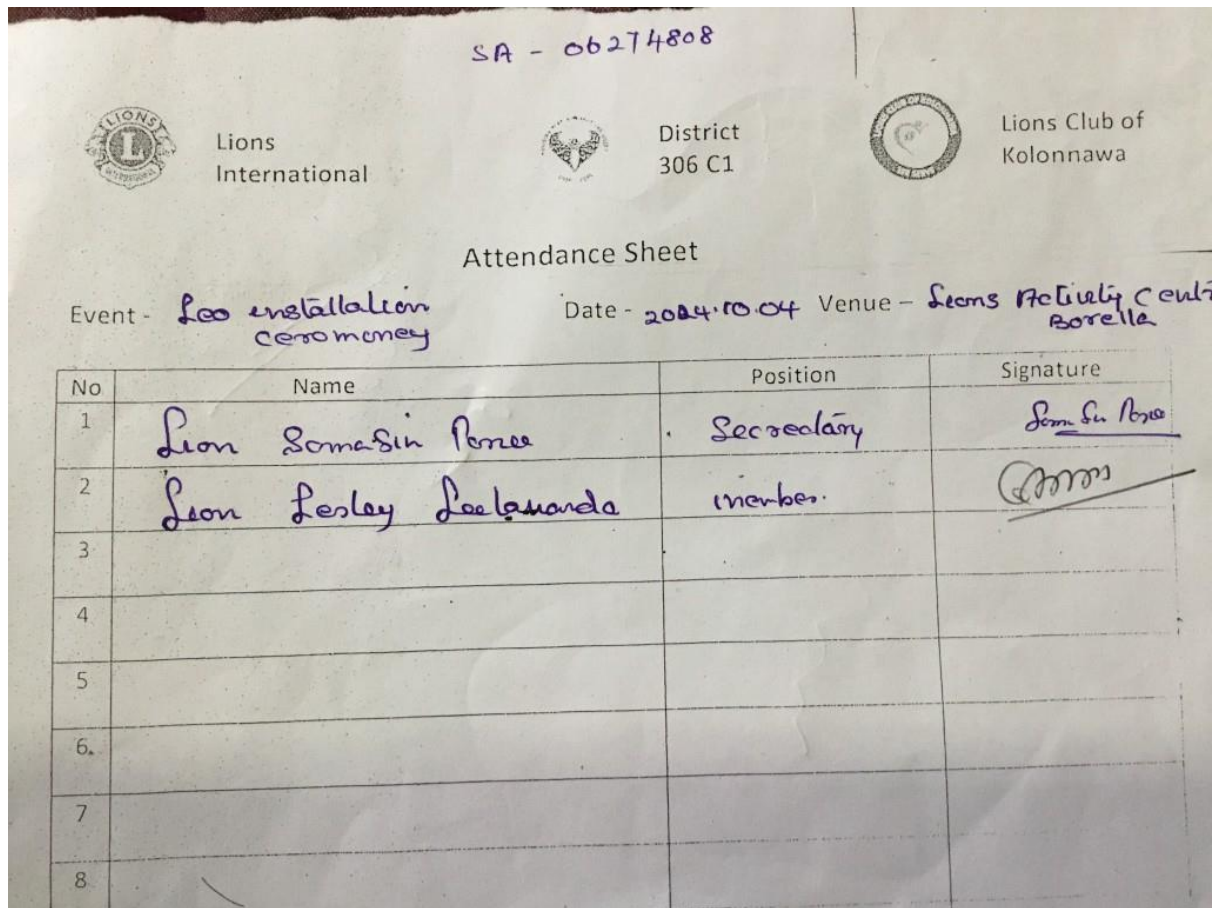 SA - 06274808
LIONS
L
INTERNATIONAL
Lions
International
District
306 C1
Lions Club of
Kolonnawa
Attendance Sheet
Event - Leo installation
ceromoney
Date - 2024.10.04 Venue - Lions Activity Cent
Borella
No Name Position Signature
1 Lion Somasiri Secredary
2 Lion Lesley Leelananda member.
3
4
5
6.
7
8